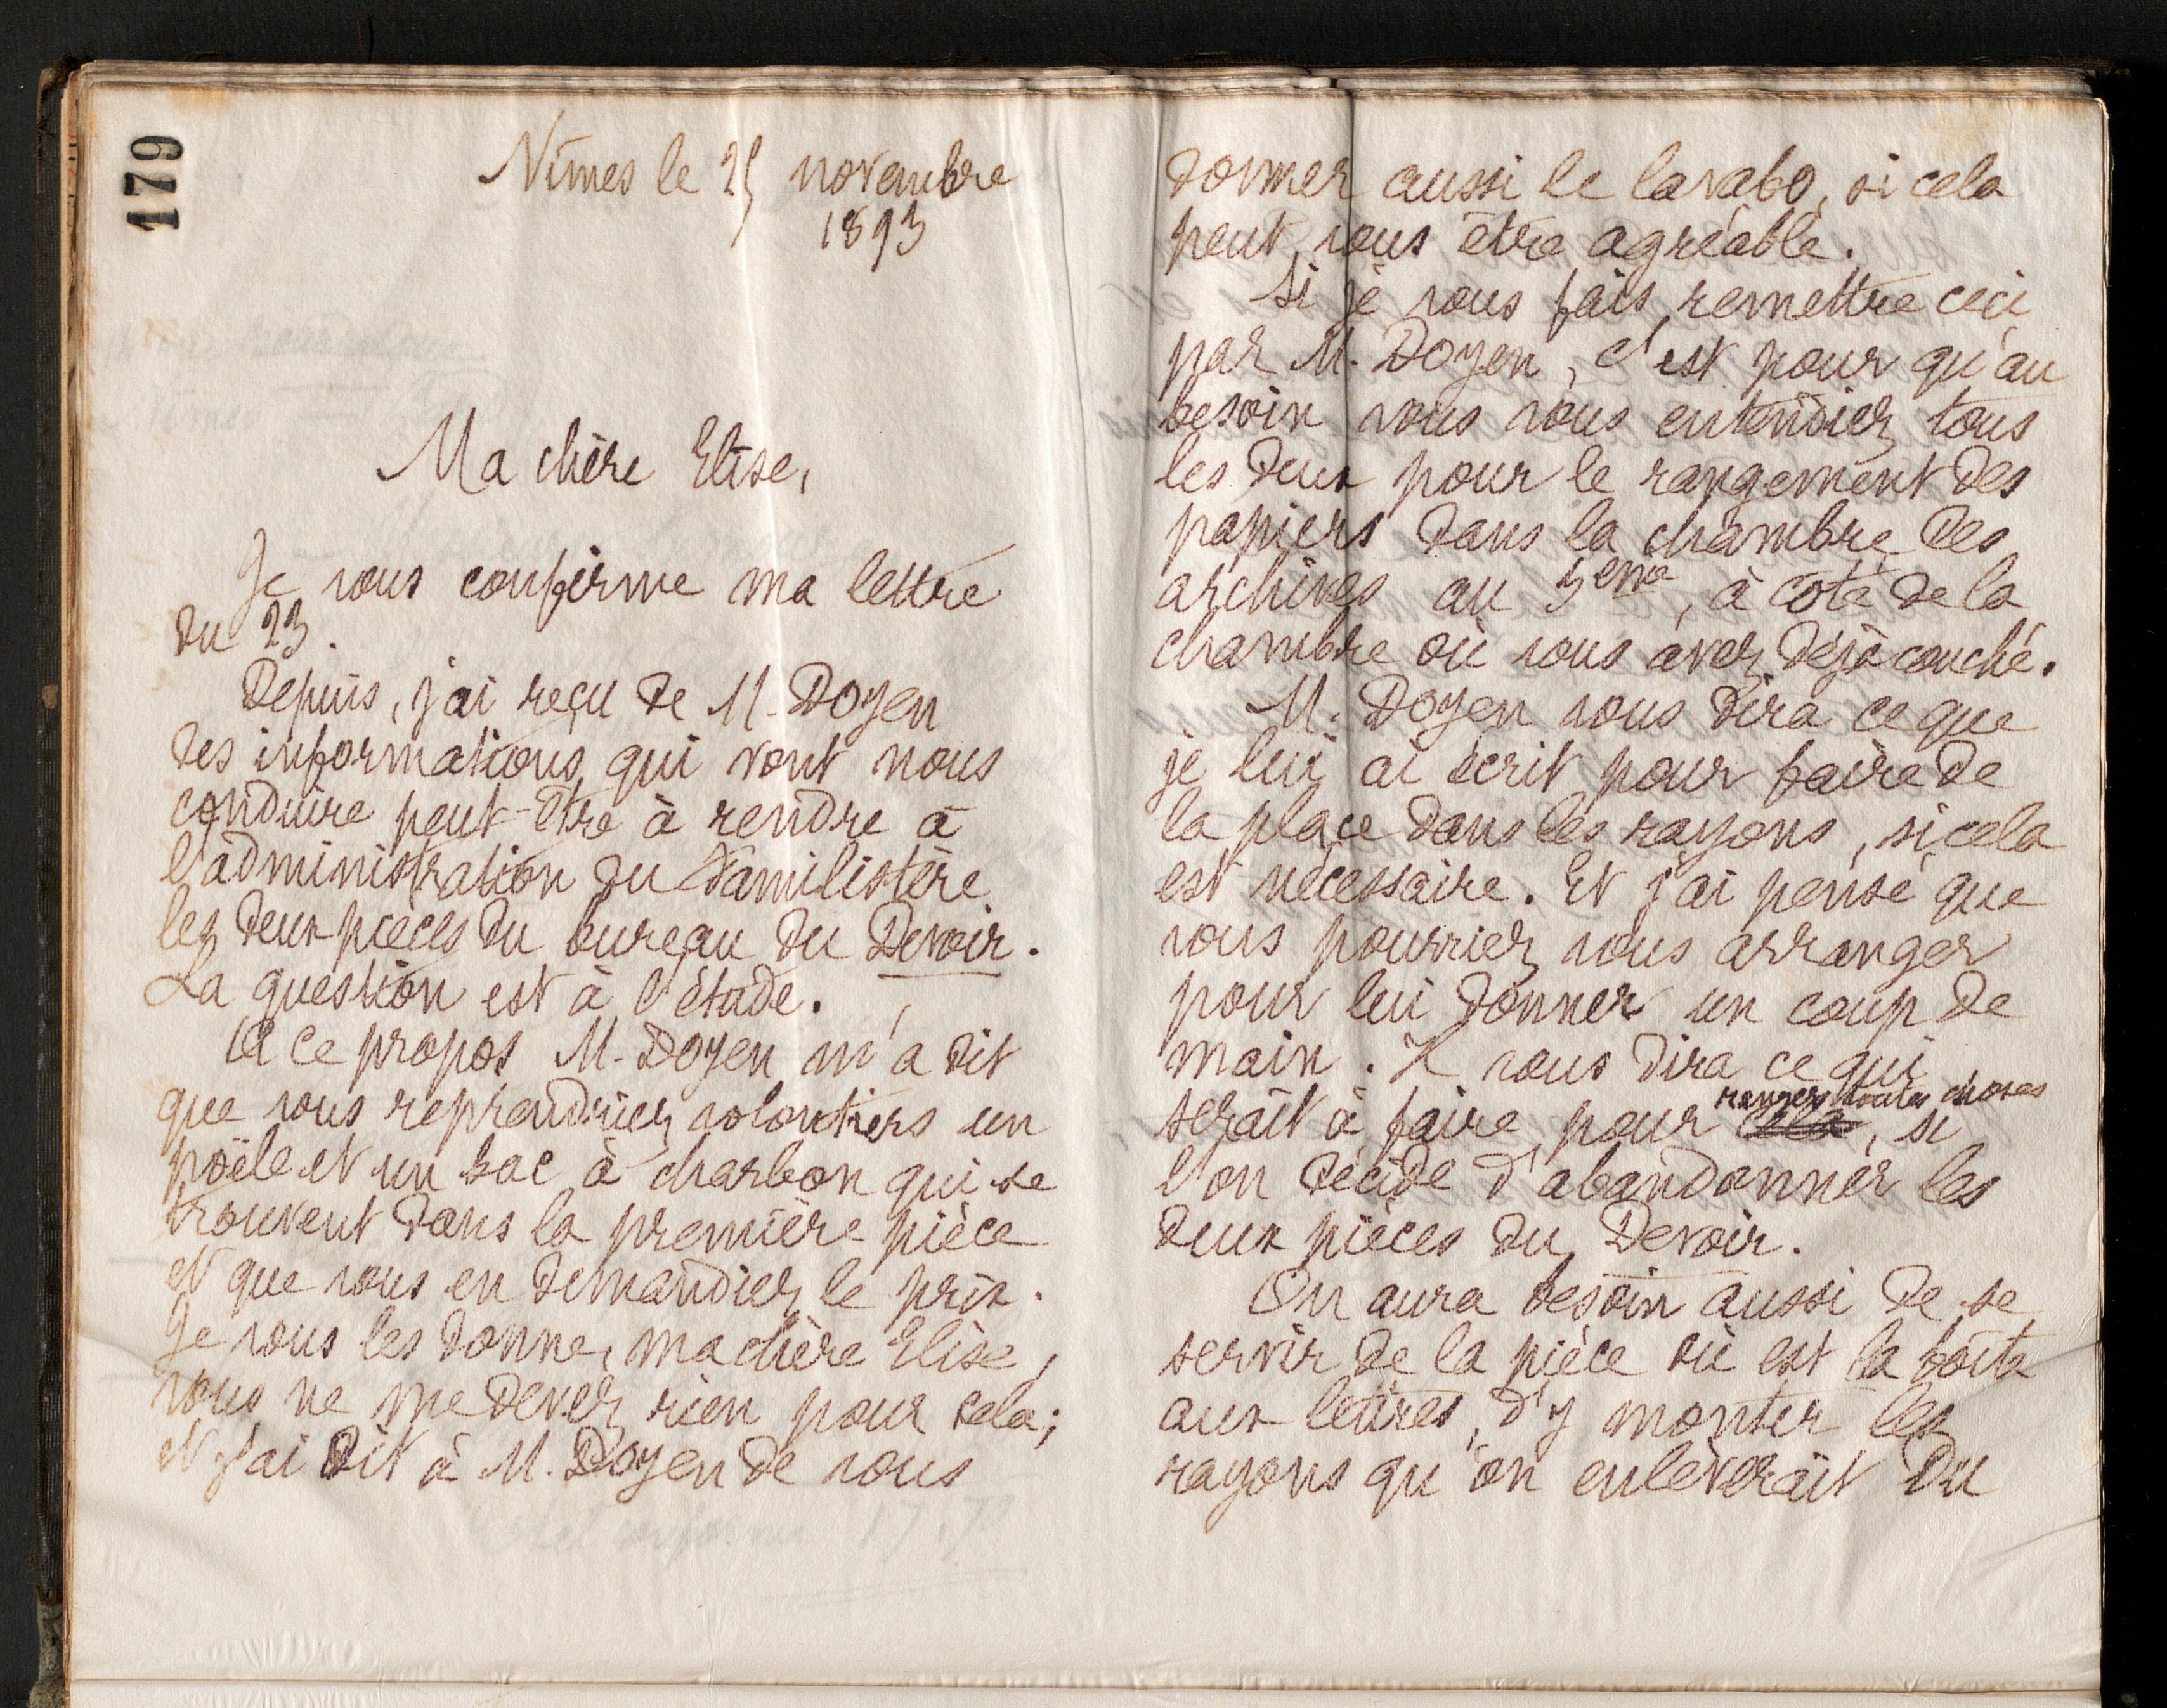 179
Nîmes le 25 novembre
1893
Ma chère Elise,
Je vous confirme ma lettre
du 23.
Depuis, j'ai reçu de M. Doyen
des informations qui vont nous
conduire peut-être à rendre à
l'administration du Familistère
les deux pièces du bureau du Devoir.
La question est à l'étude.
A ce propos M. Doyen m'a dit
que vous reprendriez volontiers un
poële et un bac à charbon qui se
trouvent dans la première pièce
et que vous en demandiez le prix.
Je vous les donne, ma chère Elise,
vous ne me devez rien pour cela;
et j'ai dit à M. Doyen de vous
donner aussi le lavabo, si cela
peut vous être agréable.
Si je vous fais remettre ceci
par M. Doyen, c'est pour qu'au
besoin vous vous entendiez tous
les deux pour le rangement des
papiers dans la chambre des
archives au 3eme, à côté de la
chambre où vous avez déjà couché.
M. Doyen vous dira ce que
je lui ai écrit pour faire de
la place dans les rayons, si cela
est nécessaire. Et j'ai pensé que
vous pourriez vous arranger
pour lui donner un coup de
main. Il vous dira ce qui
serait à faire pour cela, si
ranger toutes choses
l'on décide d'abandonner les
deux pièces du Devoir.
On aura besoin aussi de se
servir de la pièce où est la boîte
aux lettres, d'y monter les
rayons qu'on enlèverait du